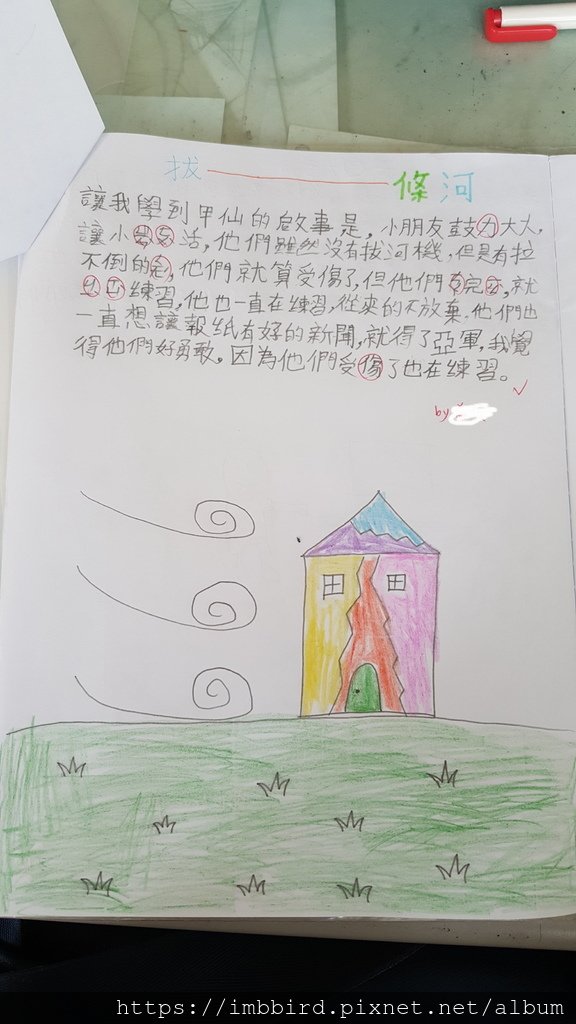 拔一條河
讓我學到甲仙的啟事是，小朋友鼓力大人，
讓小活，他們雖然沒有拔河機，但是有拉
不倒的，他們就算受傷了，但他們完，就
練習，他也一直在練習，從來的不放棄，他們也
一直想讓報紙有好的新聞，就得了亞軍，我覺
得他們好勇敢。因為他們受傷了也在練習。
by
https://imbbird.pixnet.net/album